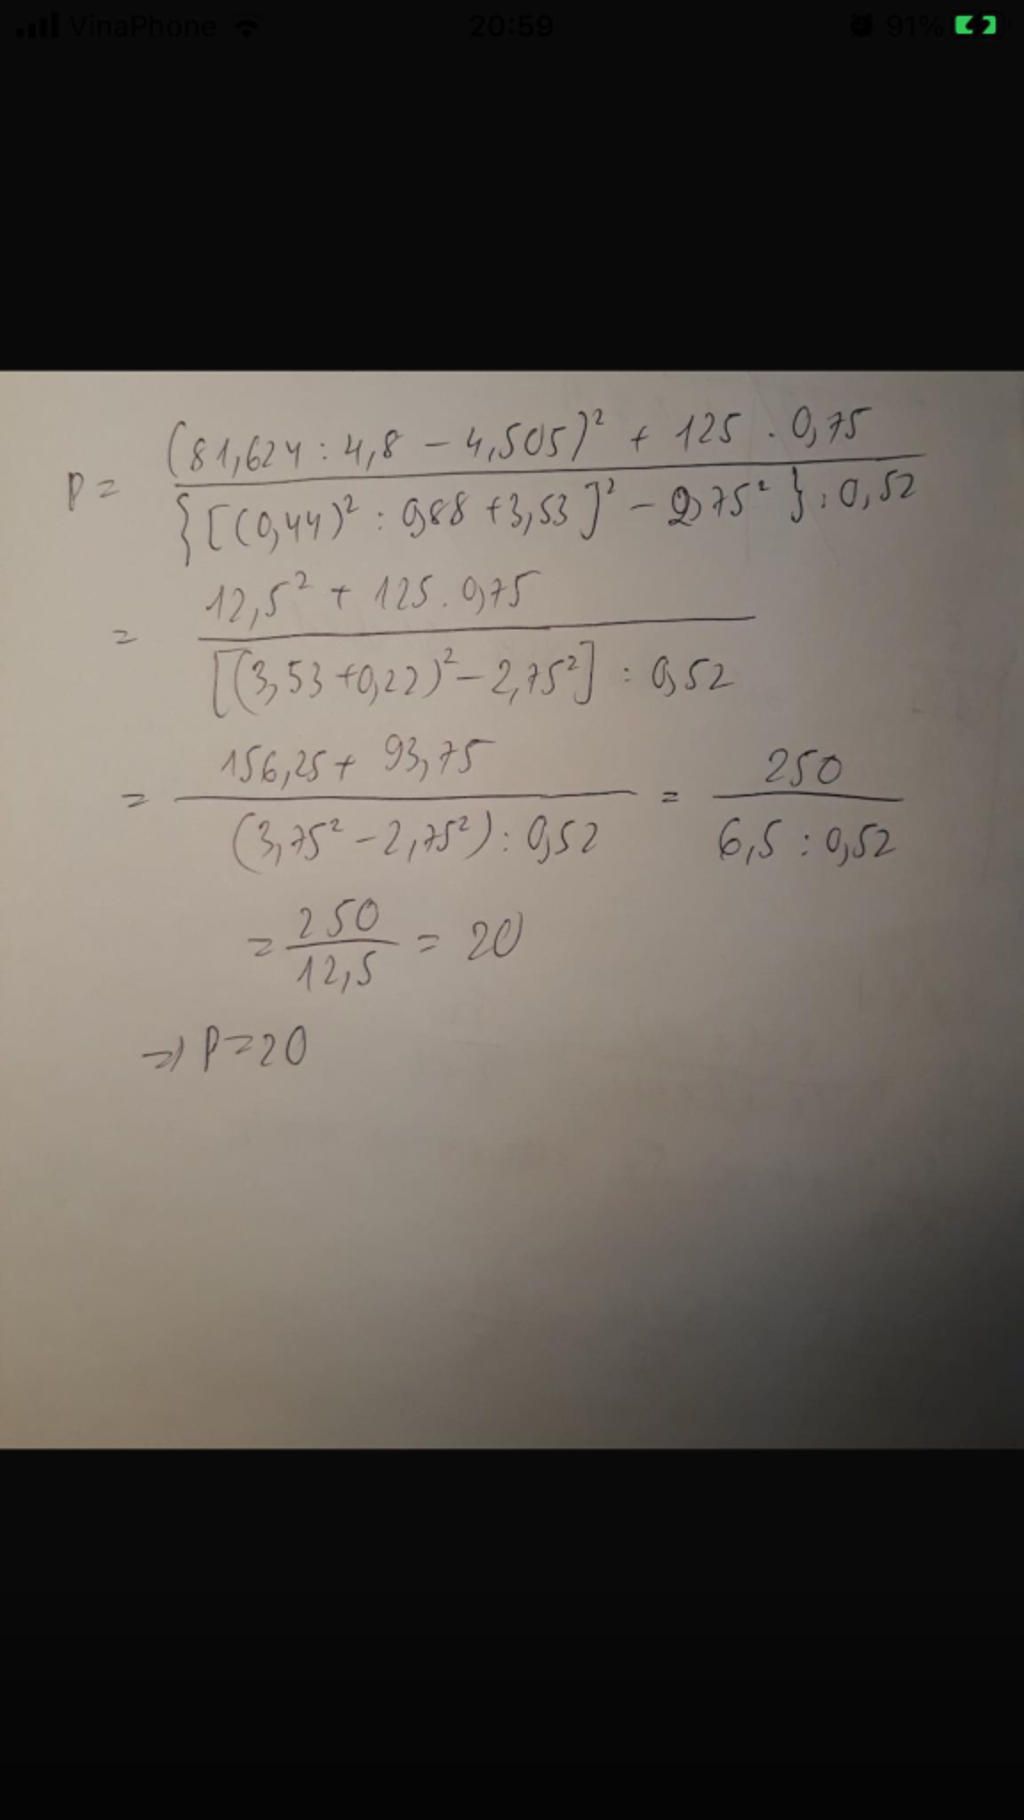 VinaPhone 20:59 91%
P = (81,624 : 4,8 - 4,505)² + 125 . 0,75
{[(0,44)² : 0,88 + 3,53]² - 2,75² } : 0,52
= 12,5² + 125 . 0,75
[(3,53 + 0,22)² - 2,75²] : 0,52
= 156,25 + 93,75 = 250
(3,75² - 2,75²) : 0,52 6,5 : 0,52
= 250 = 20
12,5
=> P = 20